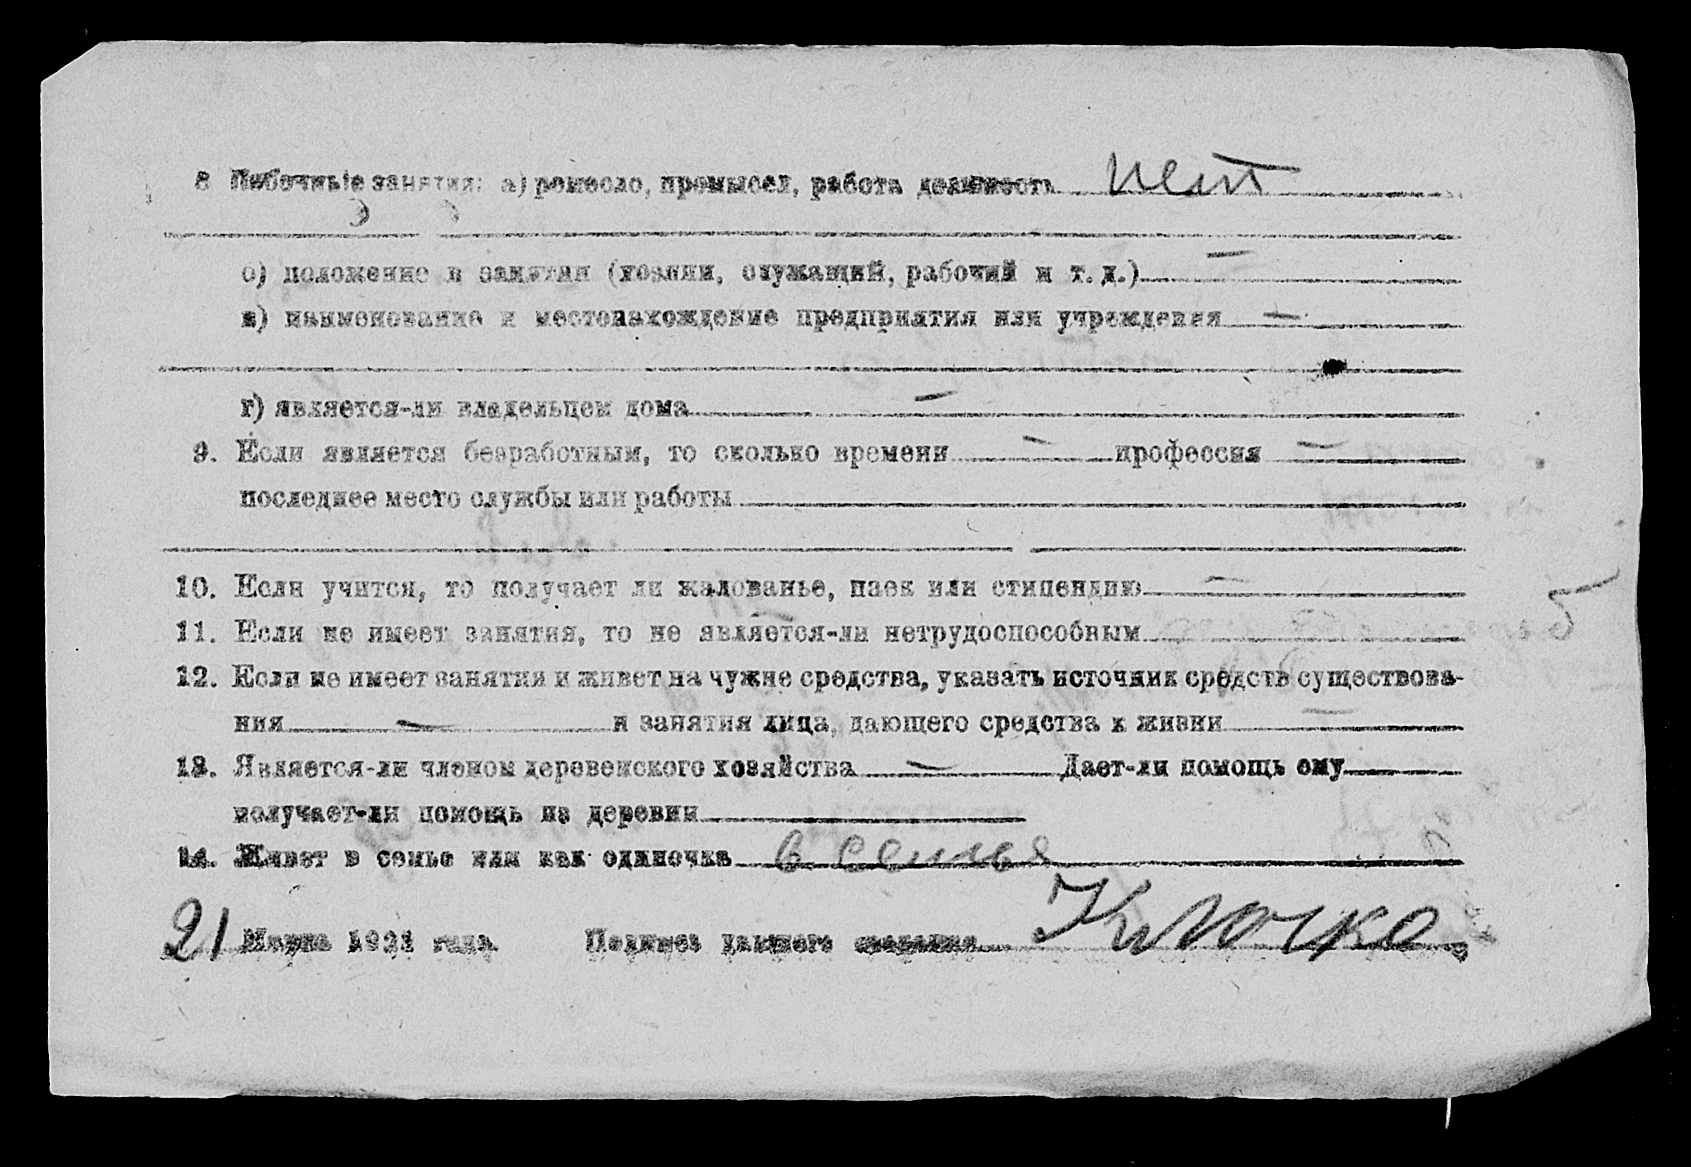 8 Побочные занятия: а) ремесло, промысел, работа должность нет
б) положение в занятии (хозяин, служащий, рабочий и т. д.) —
в) наименование и местонахождение предприятия или учреждения —
г) является-ли владельцем дома —
9. Если является безработным, то сколько времени — профессия —
последнее место службы или работы
10. Если учится, то получает ли жалованье, паек или стипендию —
11. Если не имеет занятия, то не является-ли нетрудоспособным
12. Если не имеет занятия и живет на чужие средства, указать источник средств существова-
ния — и занятия лица, дающего средства к жизни —
13. Является-ли членом деревенского хозяйства — Дает-ли помощь ему
получает-ли помощь из деревни
14. Живет в семье или как одиночка в семье
21 Марта 1921 года. Подпись давшего сведения